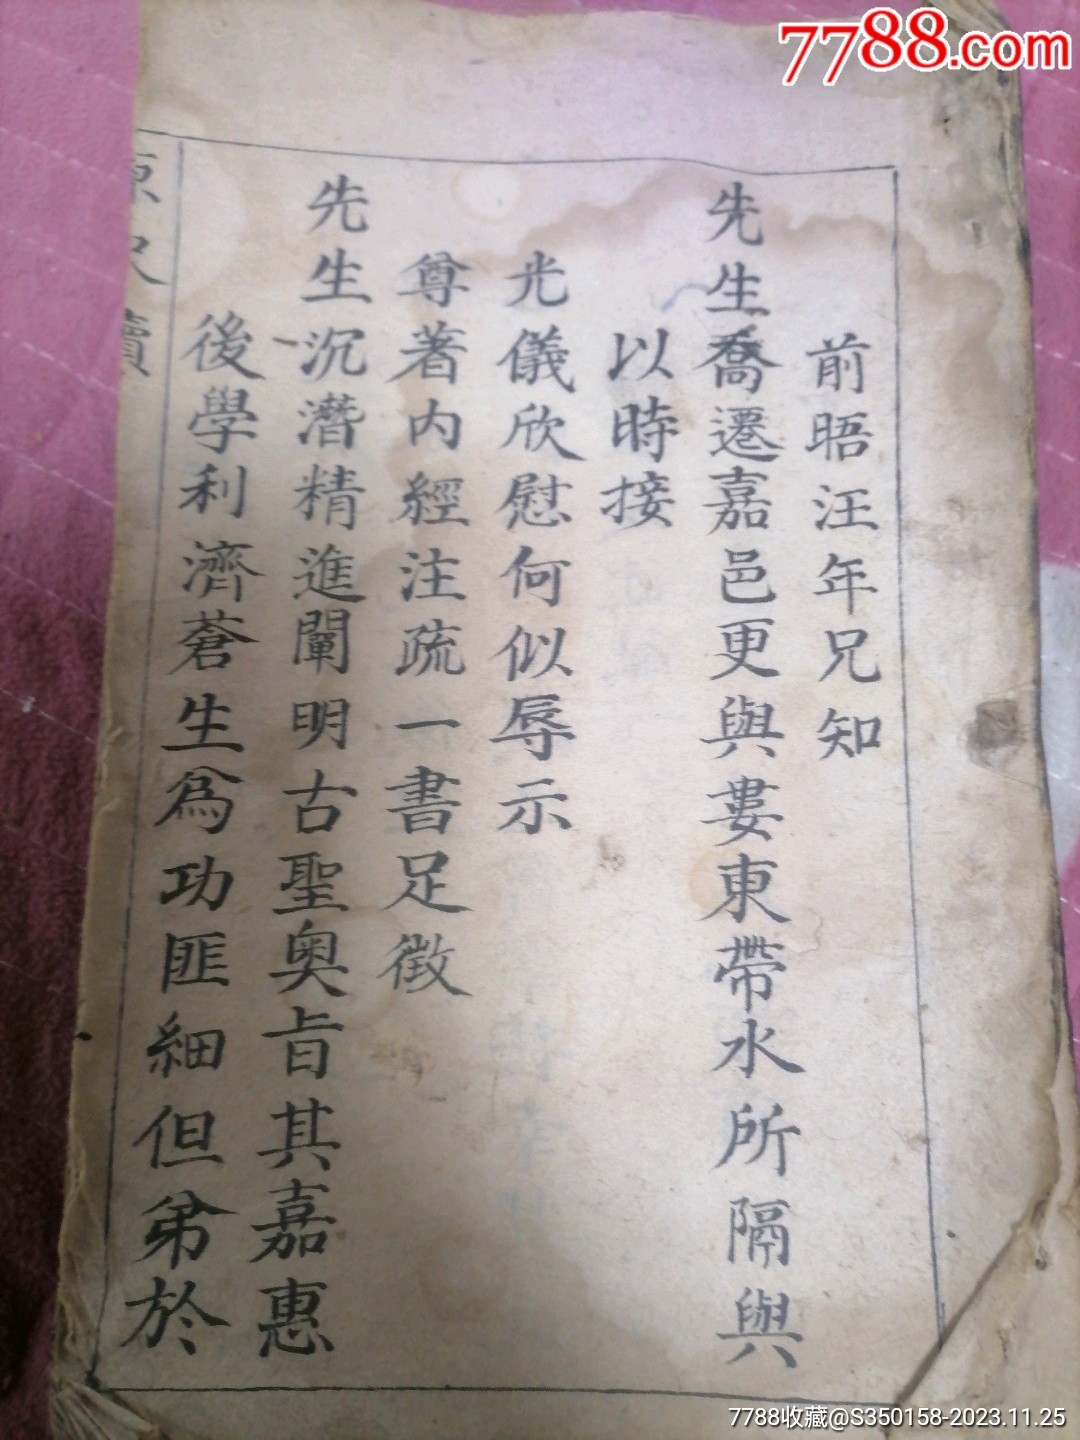 7788.com
前晤汪年兄知
先生喬遷嘉邑更與婁東帶水所隔與
以時接
光儀欣慰何似辱示
尊著內經注疏一書足徵
先生沉潛精進闡明古聖奥旨其嘉惠
後學利濟蒼生為功匪細但弟於
尺牘
7788收藏@S350158-2023.11.25